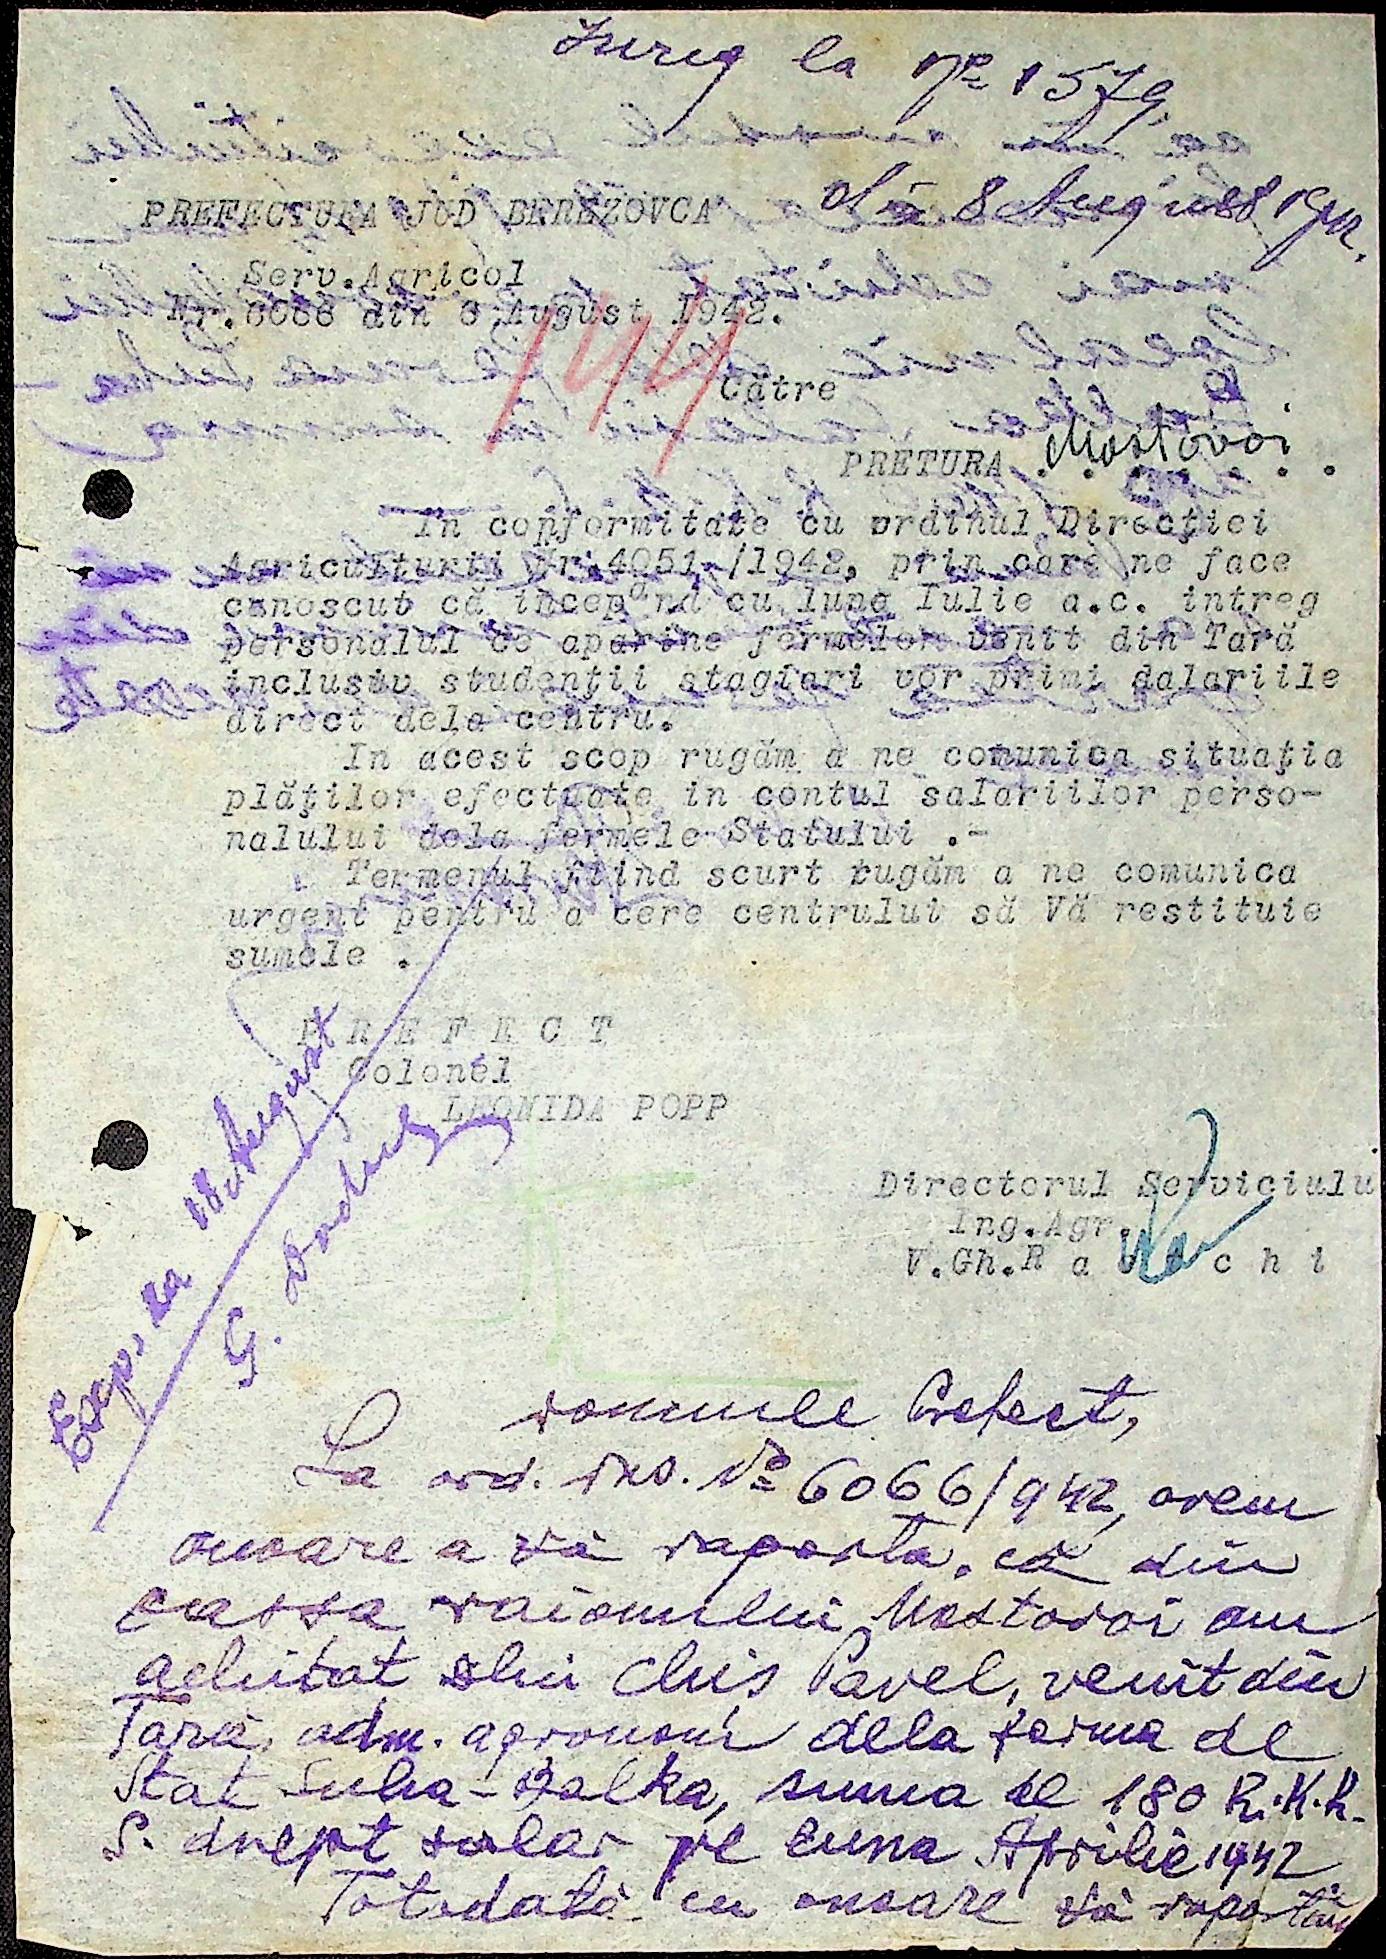 Inreg la No 1579
din 8 August 1942.
PREFECTURA JUD BEREZOVCA
Serv.Agricol
Nr.6066 din 6 August 1942.
144
Către
PRETURA Mostovoi
In conformitate cu ordinul Direcţiei
Agriculturii Nr.4051./1942, prin care ne face
cunoscut că incepând cu luna Iulie a.c. intreg
personalul ce aparţine fermelor venit din Tară
inclusiv studenţii stagiari vor primi salariile
direct dela centru.
In acest scop rugăm a ne comunica situaţia
plăţilor efectuate in contul salariilor perso-
nalului dela fermele Statului .-
Termenul fiind scurt rugăm a ne comunica
urgent pentru a cere centrului să Vă restituie
sumele .
P R E F E C T
Colonel
LEONIDA POPP
Directorul Serviciulu
Ing.Agr.
V.Gh.R a c h i
Exp. la 18 August
G.
Domnule Prefect,
La ord. Dvs. No 6066/942, avem
onoare a vă raporta, că din
cassa raionului Mostovoi am
achitat dlui Chis Pavel, venit din
Tară, adm. agronom dela ferma de
Stat Suha-Balka, suma de 180 R.K.K.
S. drept salar pe luna Aprilie 1942
Totodată cu onoare vă raportăm